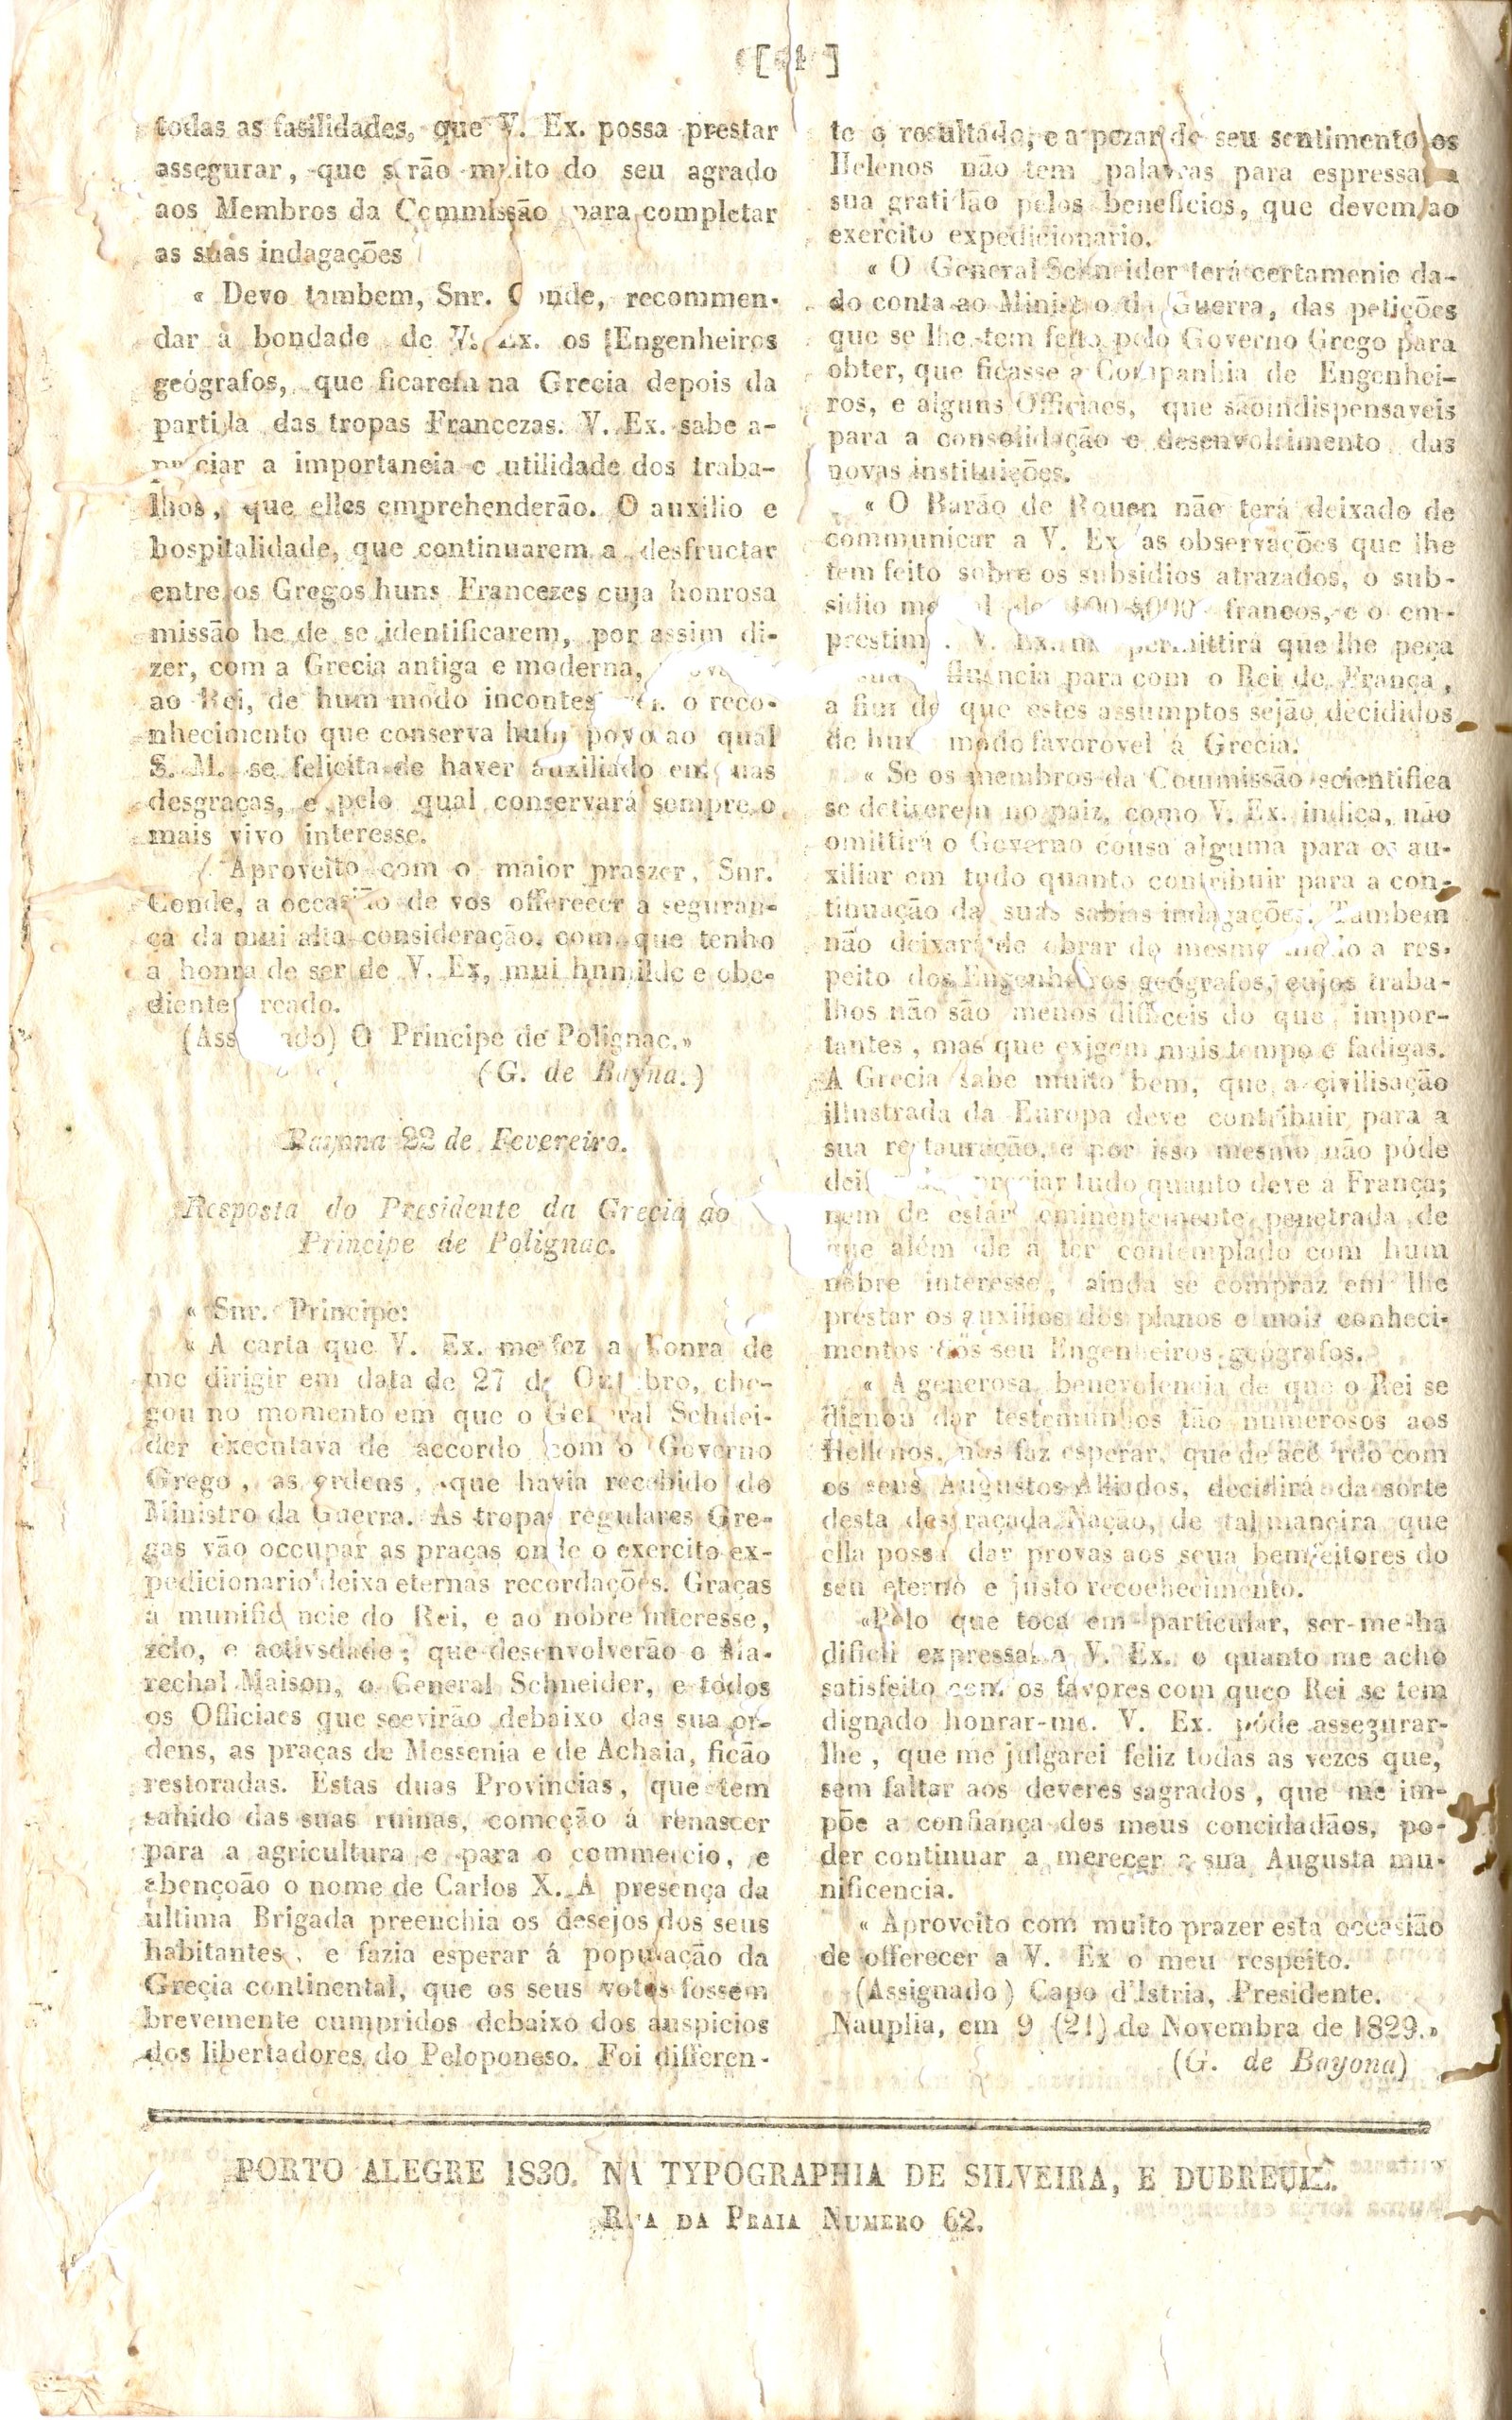 todas as fasilidades, que V. Ex. possa prestar
assegurar, que serão muito do seu agrado
aos Membros da Commissão para completar
as suas indagações
« Devo tambem, Snr. Conde, recommen-
dar à bondade de V. Ex. os Engenheiros
geógrafos, que ficarem na Grecia depois da
partida das tropas Francezas. V. Ex. sabe a-
ciar a importancia e utilidade dos traba-
lhos, que elles emprehenderão. O auxilio e
hospitalidade, que continuarem a desfructar
entre os Gregos huns Francezes cuja honrosa
missão he de se identificarem, por assim di-
zer, com a Grecia antiga e moderna,
ao Rei, de hum modo incontes o reco-
nhecimento que conserva hum povo ao qual
S. M. se felicita de haver auxiliado em suas
desgraças, e pelo qual conservará sempre o
mais vivo interesse.
Aproveito com o maior praszer, Snr.
Conde, a occasião de vos offerecer a seguran-
ça da mui alta consideração, com que tenho
a honra de ser de V. Ex, mui humilde e obe-
diente creado.
(Assignado) O Principe de Polignac.»
(G. de Bayna.)
Bayona 22 de Fevereiro.
Resposta do Presidente da Grecia ao
Principe de Polignac.
« Snr. Principe:
« A carta que V. Ex. me fez a honra de
me dirigir em data de 27 de Outubro, che-
gou no momento em que o General Schnei-
der executava de accordo com o Governo
Grego, as ordens, que havia recebido do
Ministro da Guerra. As tropas regulares Gre-
gas vão occupar as praças onde o exercito ex-
pedicionario deixa eternas recordações. Graças
a munificencie do Rei, e ao nobre interesse,
zelo, e activsdade; que desenvolverão o Ma-
rechal Maison, o General Schneider, e todos
os Officiaes que seevirão debaixo das sua or-
dens, as praças de Messenia e de Achaia, ficão
restoradas. Estas duas Provincias, que tem
sahido das suas ruinas, começão á renascer
para a agricultura e para o commercio, e
abençoão o nome de Carlos X. A presença da
ultima Brigada preenchia os desejos dos seus
habitantes, e fazia esperar á população da
Greçia continental, que os seus votos fossem
brevemente cumpridos debaixo dos auspicios
dos libertadores do Peloponeso. Foi differen-
te o resultado, e a pezar de seu sentimento os
Helenos não tem palavras para espressar a
sua gratidão pelos beneficios, que devem ao
exercito expedicionario.
« O General Schneider terá certamenie da-
do conta ao Ministro da Guerra, das petições
que se lhe tem feito pelo Governo Grego para
obter, que ficasse a Companhia de Engenhei-
ros, e alguns Officiaes, que sãoindispensaveis
para a consolidação e desenvolvimento das
novas instituições.
« O Barão de Rouen não terá deixado de
communicar a V. Ex as observações que lhe
tem feito sobre os subsidios atrazados, o sub-
sidio francos, e o em-
prestimo. V. Ex. me permittirá que lhe peça
sua influencia para com o Rei de França,
a fim de que estes assumptos sejão decididos
de hum modo favorovel à Grecia.
« Se os membros da Commissão scientifica
se detiverem no paiz, como V. Ex. indica, não
omittirá o Governo cousa alguma para os au-
xiliar em tudo quanto contribuir para a con-
tinuação da suas sabias indagações. Tambem
não deixará de obrar do mesmo modo a res-
peito dos Engenheiros geógrafos, cujos traba-
lhos não são menos difficeis do que impor-
tantes, mas que exigem mais tempo e fadigas.
A Grecia sabe muito bem, que a civilisação
illustrada da Europa deve contribuir para a
sua restauração, e por isso mesmo não póde
preciar tudo quanto deve a França;
nem de estar eminentemente penetrada de
que além de a ter contemplado com hum
nobre interesse, ainda se compraz em lhe
prestar os auxilios dos planos e mais conheci-
mentos dos seu Engenheiros geógrafos.
« A generosa benevolencia de que o Rei se
dignou dar testemunhos tão numerosos aos
Hellenos, nos faz esperar, que de accordo com
os seus Augustos Alliados, decidirá da sorte
desta desgraçada Nação, de tal maneira que
ella possa dar provas aos seua bemfeitores do
seu eterno e justo recoehecimento.
«Pelo que toca em particular, ser-me-ha
dificil expressar a V. Ex. o quanto me acho
satisfeito com os favores com queo Rei se tem
dignado honrar-me. V. Ex. póde assegurar-
lhe, que me julgarei feliz todas as vezes que,
sem faltar aos deveres sagrados, que me im-
põe a confiança dos meus concidadãos, po-
der continuar a merecer a sua Augusta mu-
nificencia.
« Aproveito com muito prazer esta occasião
de offerecer a V. Ex o meu respeito.
(Assignado) Capo d'Istria, Presidente.
Nauplia, em 9 (21) de Novembra de 1829.»
(G. de Bayona)
PORTO ALEGRE 1830. NA TYPOGRAPHIA DE SILVEIRA, E DUBREUIL.
RUA DA PRAIA NUMERO 62.